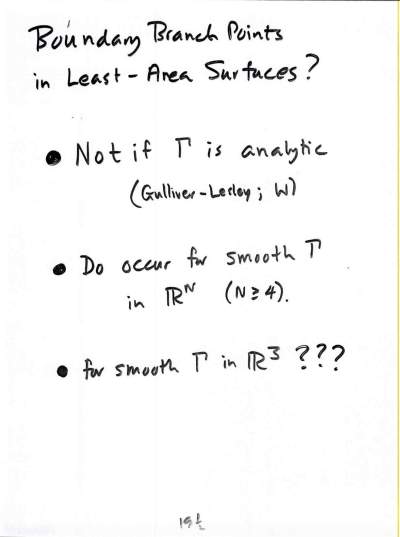 Boundary Branch Points
in Least-Area Surfaces?
● Not if Γ is analytic
(Gulliver-Lesley; W)
● Do occur for smooth Γ
in ℝᴺ (N≥4).
● for smooth Γ in ℝ³ ???
19½